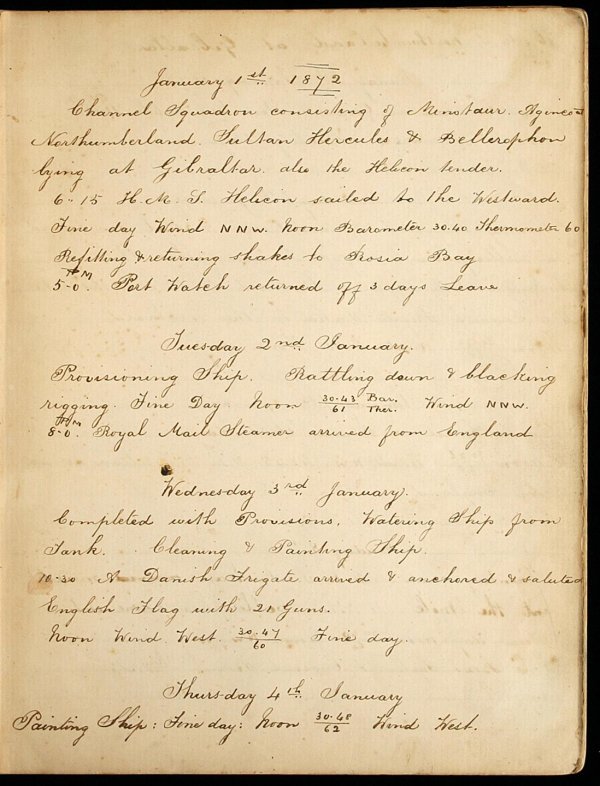 January 1st 1872
Channel Squadron consisting of Minotaur. Agincot
Northumberland. Sultan Hercules & Bellerophon
lying at Gibraltar. also the Helicon tender.
6.15 H. M. S. Helicon sailed to the Westward.
Fine day Wind NNW. Noon Barometer 30.40 Thermometer 60
Refitting & returning shakes to Rosia Bay
5-0. PM Port Watch returned off 3 days Leave
Tuesday 2nd January.
Provisioning Ship. Rattling down & blacking
rigging. Fine Day. Noon 30.43 Bar. 61 Ther. Wind NNW.
8-0. PM Royal Mail Steamer arrived from England
Wednesday 3rd January.
Completed with Provisions, Watering Ship from
Tank. Cleaning & Painting Ship.
10-30 A Danish Frigate arrived & anchored & saluted
English Flag with 21 Guns.
Noon Wind West. 30.47 60 Fine day.
Thursday 4th January
Painting Ship: Fine day: Noon 30.48 62 Wind West.